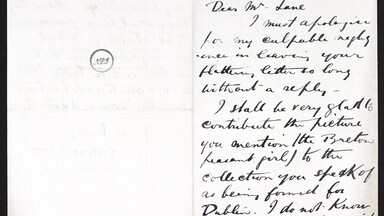 Dear Mr Lane
I must apologise
for my culpable neglig
ence in leaving your
flattering letter so long
without a reply-
I shall be very glad to
contribute the picture
you mention (the Breton
peasant girl) to the
collection you speak of
as being formed for
Dublin. I do not know